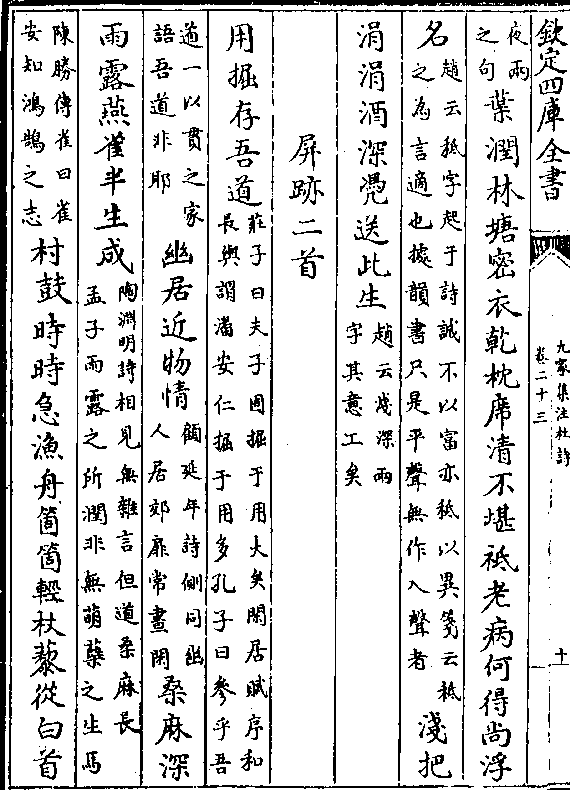 欽定四庫全書
九家集注杜詩
卷二十三
十
夜雨
之句
葉潤林塘密衣乾枕席清不堪祗老病何得尚浮
名
趙云秪字起于詩誠不以富亦秪以異箋云秪
之為言適也據韻書只是平聲無作入聲者
淺把
涓涓酒深凭送此生
趙云淺深兩
字其意工矣
屏跡二首
用掘存吾道
莊子曰夫子固掘于用大矣閑居賦序和
長與謂潘安仁掘于用多孔子曰參乎吾
道一以貫之家
語吾道非耶
幽居近物情
顏延年詩側同幽
人居郊扉常晝閉
桑麻深
雨露燕雀半生成
陶淵明詩相見無雜言但道桑麻長
孟子雨露之所潤非無萌蘖之生焉
陳勝傳雀曰雀
安知鴻鵠之志
村鼓時時急漁舟箇箇輕杖藜從白首